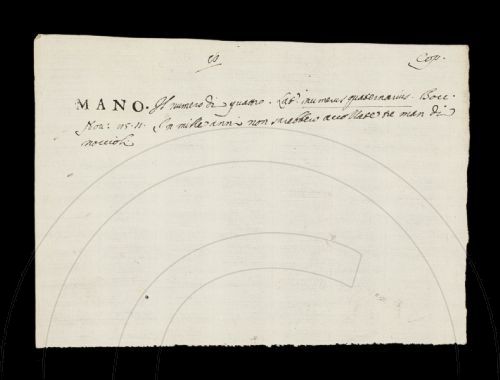 Cop.
MANO. Il numero di quattro. Lat. numerus quaternarius. Bocc.
Nov: 115. 11. In mille anni non sarebbero accozzate tre man di
noccioli